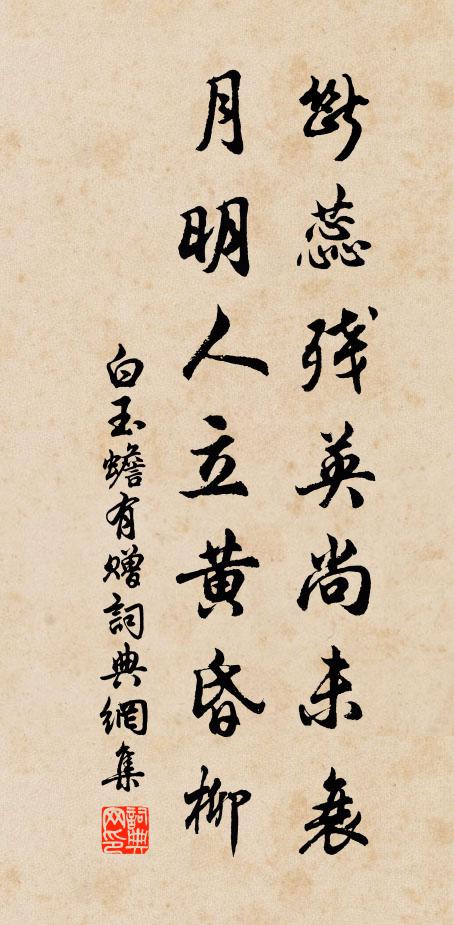 断蕊残英尚未衰
月明人立黄昏柳
白玉蟾有赠詞典網集
詞典网印